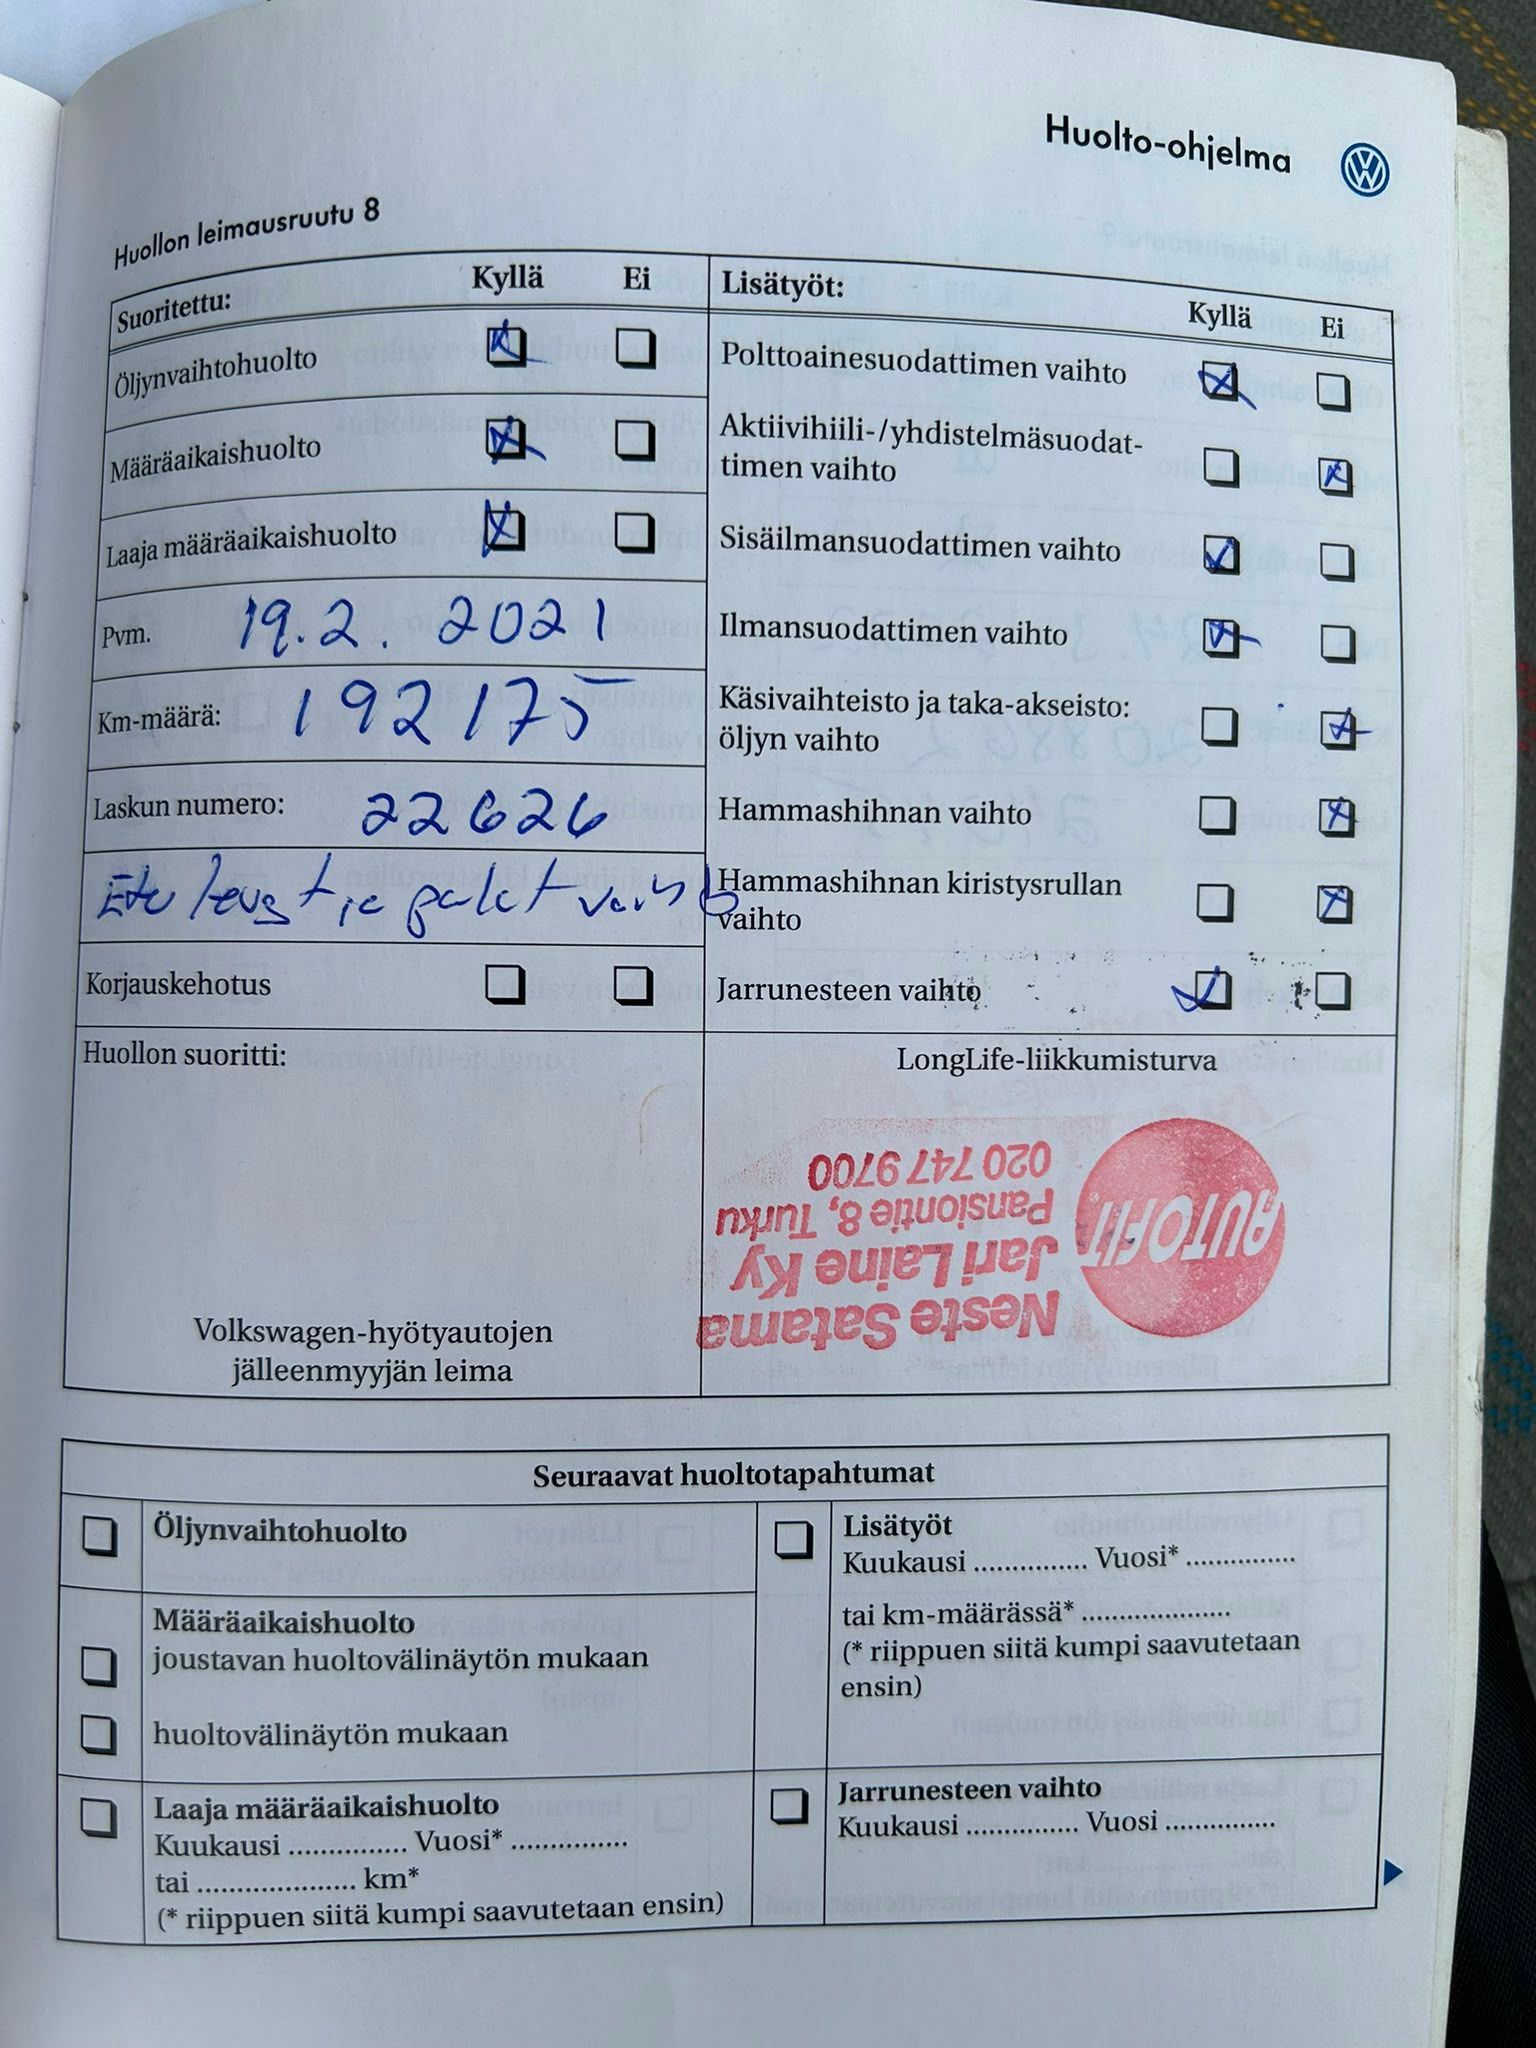 Huolto-ohjelma
Huollon leimausruutu 8
Suoritettu: Kyllä Ei
Öljynvaihtohuolto
Määräaikaishuolto
Laaja määräaikaishuolto
Pvm. 19.2. 2021
Km-määrä: 192175
Laskun numero: 22626
Etu levyt ja palat vaihto
Korjauskehotus
Lisätyöt: Kyllä Ei
Polttoainesuodattimen vaihto
Aktiivihiili-/yhdistelmäsuodat-
timen vaihto
Sisäilmansuodattimen vaihto
Ilmansuodattimen vaihto
Käsivaihteisto ja taka-akseisto:
öljyn vaihto
Hammashihnan vaihto
Hammashihnan kiristysrullan
vaihto
Jarrunesteen vaihto
Huollon suoritti:
Volkswagen-hyötyautojen
jälleenmyyjän leima
LongLife-liikkumisturva
AUTOFIT
Neste Satama
Jari Laine Ky
Pansiontie 8, Turku
020 747 9700
Seuraavat huoltotapahtumat
Öljynvaihtohuolto
Määräaikaishuolto
joustavan huoltovälinäytön mukaan
huoltovälinäytön mukaan
Laaja määräaikaishuolto
Kuukausi .............. Vuosi* ..............
tai .................... km*
(* riippuen siitä kumpi saavutetaan ensin)
Lisätyöt
Kuukausi .............. Vuosi* ..............
tai km-määrässä* ...................
(* riippuen siitä kumpi saavutetaan
ensin)
Jarrunesteen vaihto
Kuukausi .............. Vuosi ..............